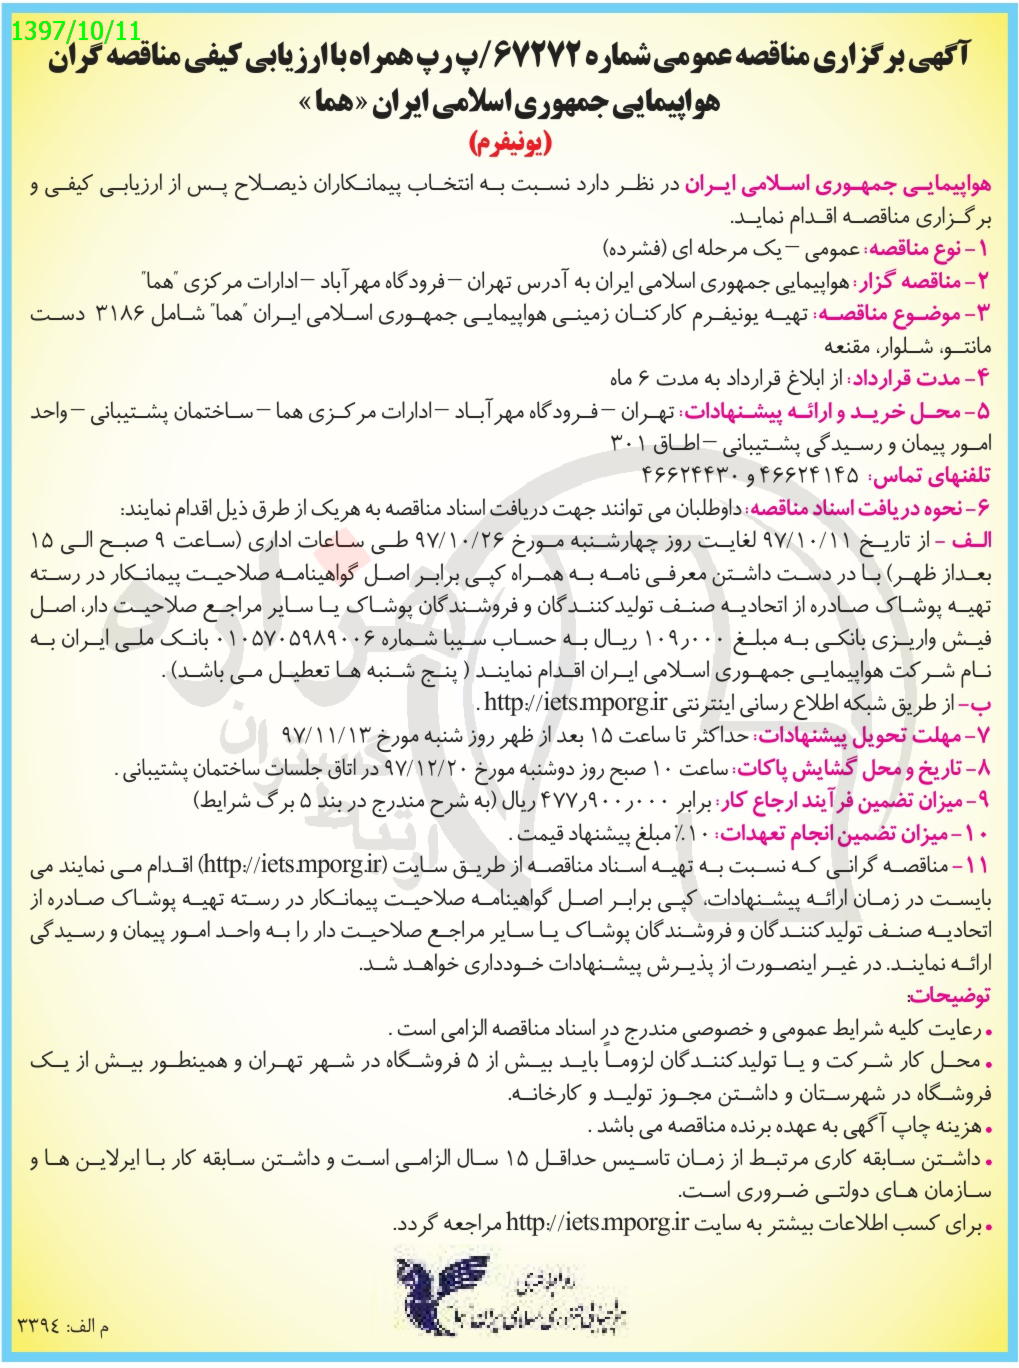 1397/10/11
آگهی برگزاری مناقصه عمومی شماره ۶۷۲۷۲/پ رپ همراه با ارزیابی کیفی مناقصه گران
هواپیمایی جمهوری اسلامی ایران «هما»
(یونیفرم)
هواپیمایی جمهوری اسلامی ایران در نظر دارد نسبت به انتخاب پیمانکاران ذیصلاح پس از ارزیابی کیفی و
برگزاری مناقصه اقدام نماید.
۱- نوع مناقصه: عمومی – یک مرحله ای (فشرده)
۲- مناقصه گزار: هواپیمایی جمهوری اسلامی ایران به آدرس تهران – فرودگاه مهرآباد – ادارات مرکزی "هما"
۳- موضوع مناقصه: تهیه یونیفرم کارکنان زمینی هواپیمایی جمهوری اسلامی ایران "هما" شامل ۳۱۸۶ دست
مانتو، شلوار، مقنعه
۴- مدت قرارداد: از ابلاغ قرارداد به مدت ۶ ماه
۵- محل خرید و ارائه پیشنهادات: تهران – فرودگاه مهرآباد – ادارات مرکزی هما – ساختمان پشتیبانی – واحد
امور پیمان و رسیدگی پشتیبانی – اطاق ۳۰۱
تلفنهای تماس: ۴۶۶۲۴۱۴۵ و ۴۶۶۲۴۴۳۰
۶- نحوه دریافت اسناد مناقصه: داوطلبان می توانند جهت دریافت اسناد مناقصه به هریک از طرق ذیل اقدام نمایند:
الف - از تاریخ ۹۷/۱۰/۱۱ لغایت روز چهارشنبه مورخ ۹۷/۱۰/۲۶ طی ساعات اداری (ساعت ۹ صبح الی ۱۵
بعداز ظهر) با در دست داشتن معرفی نامه به همراه کپی برابر اصل گواهینامه صلاحیت پیمانکار در رسته
تهیه پوشاک صادره از اتحادیه صنف تولیدکنندگان و فروشندگان پوشاک یا سایر مراجع صلاحیت دار، اصل
فیش واریزی بانکی به مبلغ ۱۰۹٫۰۰۰ ریال به حساب سیبا شماره ۰۱۰۵۷۰۵۹۸۹۰۰۶ بانک ملی ایران به
نام شرکت هواپیمایی جمهوری اسلامی ایران اقدام نمایند ( پنج شنبه ها تعطیل می باشد) .
ب- از طریق شبکه اطلاع رسانی اینترنتی http://iets.mporg.ir .
۷- مهلت تحویل پیشنهادات: حداکثر تا ساعت ۱۵ بعد از ظهر روز شنبه مورخ ۹۷/۱۱/۱۳
۸- تاریخ و محل گشایش پاکات: ساعت ۱۰ صبح روز دوشنبه مورخ ۹۷/۱۲/۲۰ در اتاق جلسات ساختمان پشتیبانی .
۹- میزان تضمین فرآیند ارجاع کار: برابر ۴۷۷٫۹۰۰٫۰۰۰ ریال (به شرح مندرج در بند ۵ برگ شرایط)
۱۰- میزان تضمین انجام تعهدات: ۱۰٪ مبلغ پیشنهاد قیمت .
۱۱- مناقصه گرانی که نسبت به تهیه اسناد مناقصه از طریق سایت (http://iets.mporg.ir) اقدام می نمایند می
بایست در زمان ارائه پیشنهادات، کپی برابر اصل گواهینامه صلاحیت پیمانکار در رسته تهیه پوشاک صادره از
اتحادیه صنف تولیدکنندگان و فروشندگان پوشاک یا سایر مراجع صلاحیت دار را به واحد امور پیمان و رسیدگی
ارائه نمایند. در غیر اینصورت از پذیرش پیشنهادات خودداری خواهد شد.
توضیحات:
• رعایت کلیه شرایط عمومی و خصوصی مندرج در اسناد مناقصه الزامی است .
• محل کار شرکت و یا تولیدکنندگان لزوماً باید بیش از ۵ فروشگاه در شهر تهران و همینطور بیش از یک
فروشگاه در شهرستان و داشتن مجوز تولید و کارخانه.
• هزینه چاپ آگهی به عهده برنده مناقصه می باشد .
• داشتن سابقه کاری مرتبط از زمان تاسیس حداقل ۱۵ سال الزامی است و داشتن سابقه کار با ایرلاین ها و
سازمان های دولتی ضروری است.
• برای کسب اطلاعات بیشتر به سایت http://iets.mporg.ir مراجعه گردد.
م الف: ۳۳۹٤